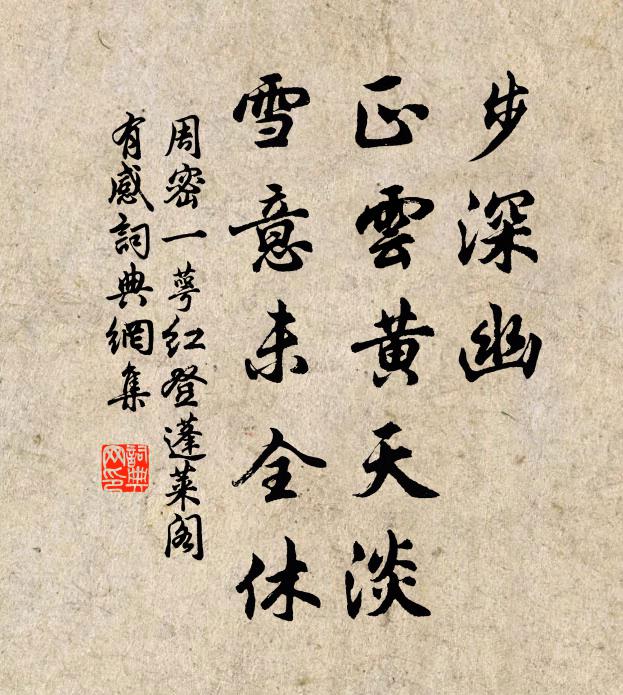 步深幽
正雲黃天淡
雪意未全休
周密一萼紅登蓬萊閣
有感詞典網集
詞典
网印